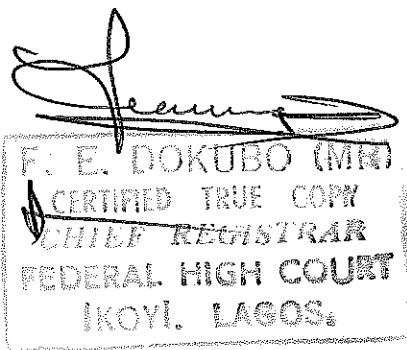 F. E. DOKUBO (MR)
CERTIFIED TRUE COPY
CHIEF REGISTRAR
FEDERAL HIGH COURT
IKOYI. LAGOS.